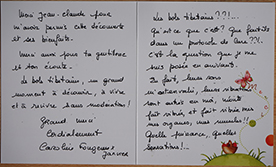 Merci Jean-claude pour
m'avoir permis cette découverte
et ses bienfaits.
Merci aussi pour ta gentillesse
et ton écoute.
Le bols tibétains, un grand
moment à découvrir, à vivre
et à revivre sans modération!
Grand merci
Cordialement
Janvier
Les bols tibétains??!...
Qu'est ce que c'est? Que font ils
dans un protocole de ?!:
c'est la question que je me
suis posée en arrivant.
En fait, leurs sons
m'ont envahi, leurs vibrations
sont entrés en moi, m'ont
fait vibrée et fait vibrés tous
mes organes, mes muscles!!
Quelle puissance, quelles
sensations!...